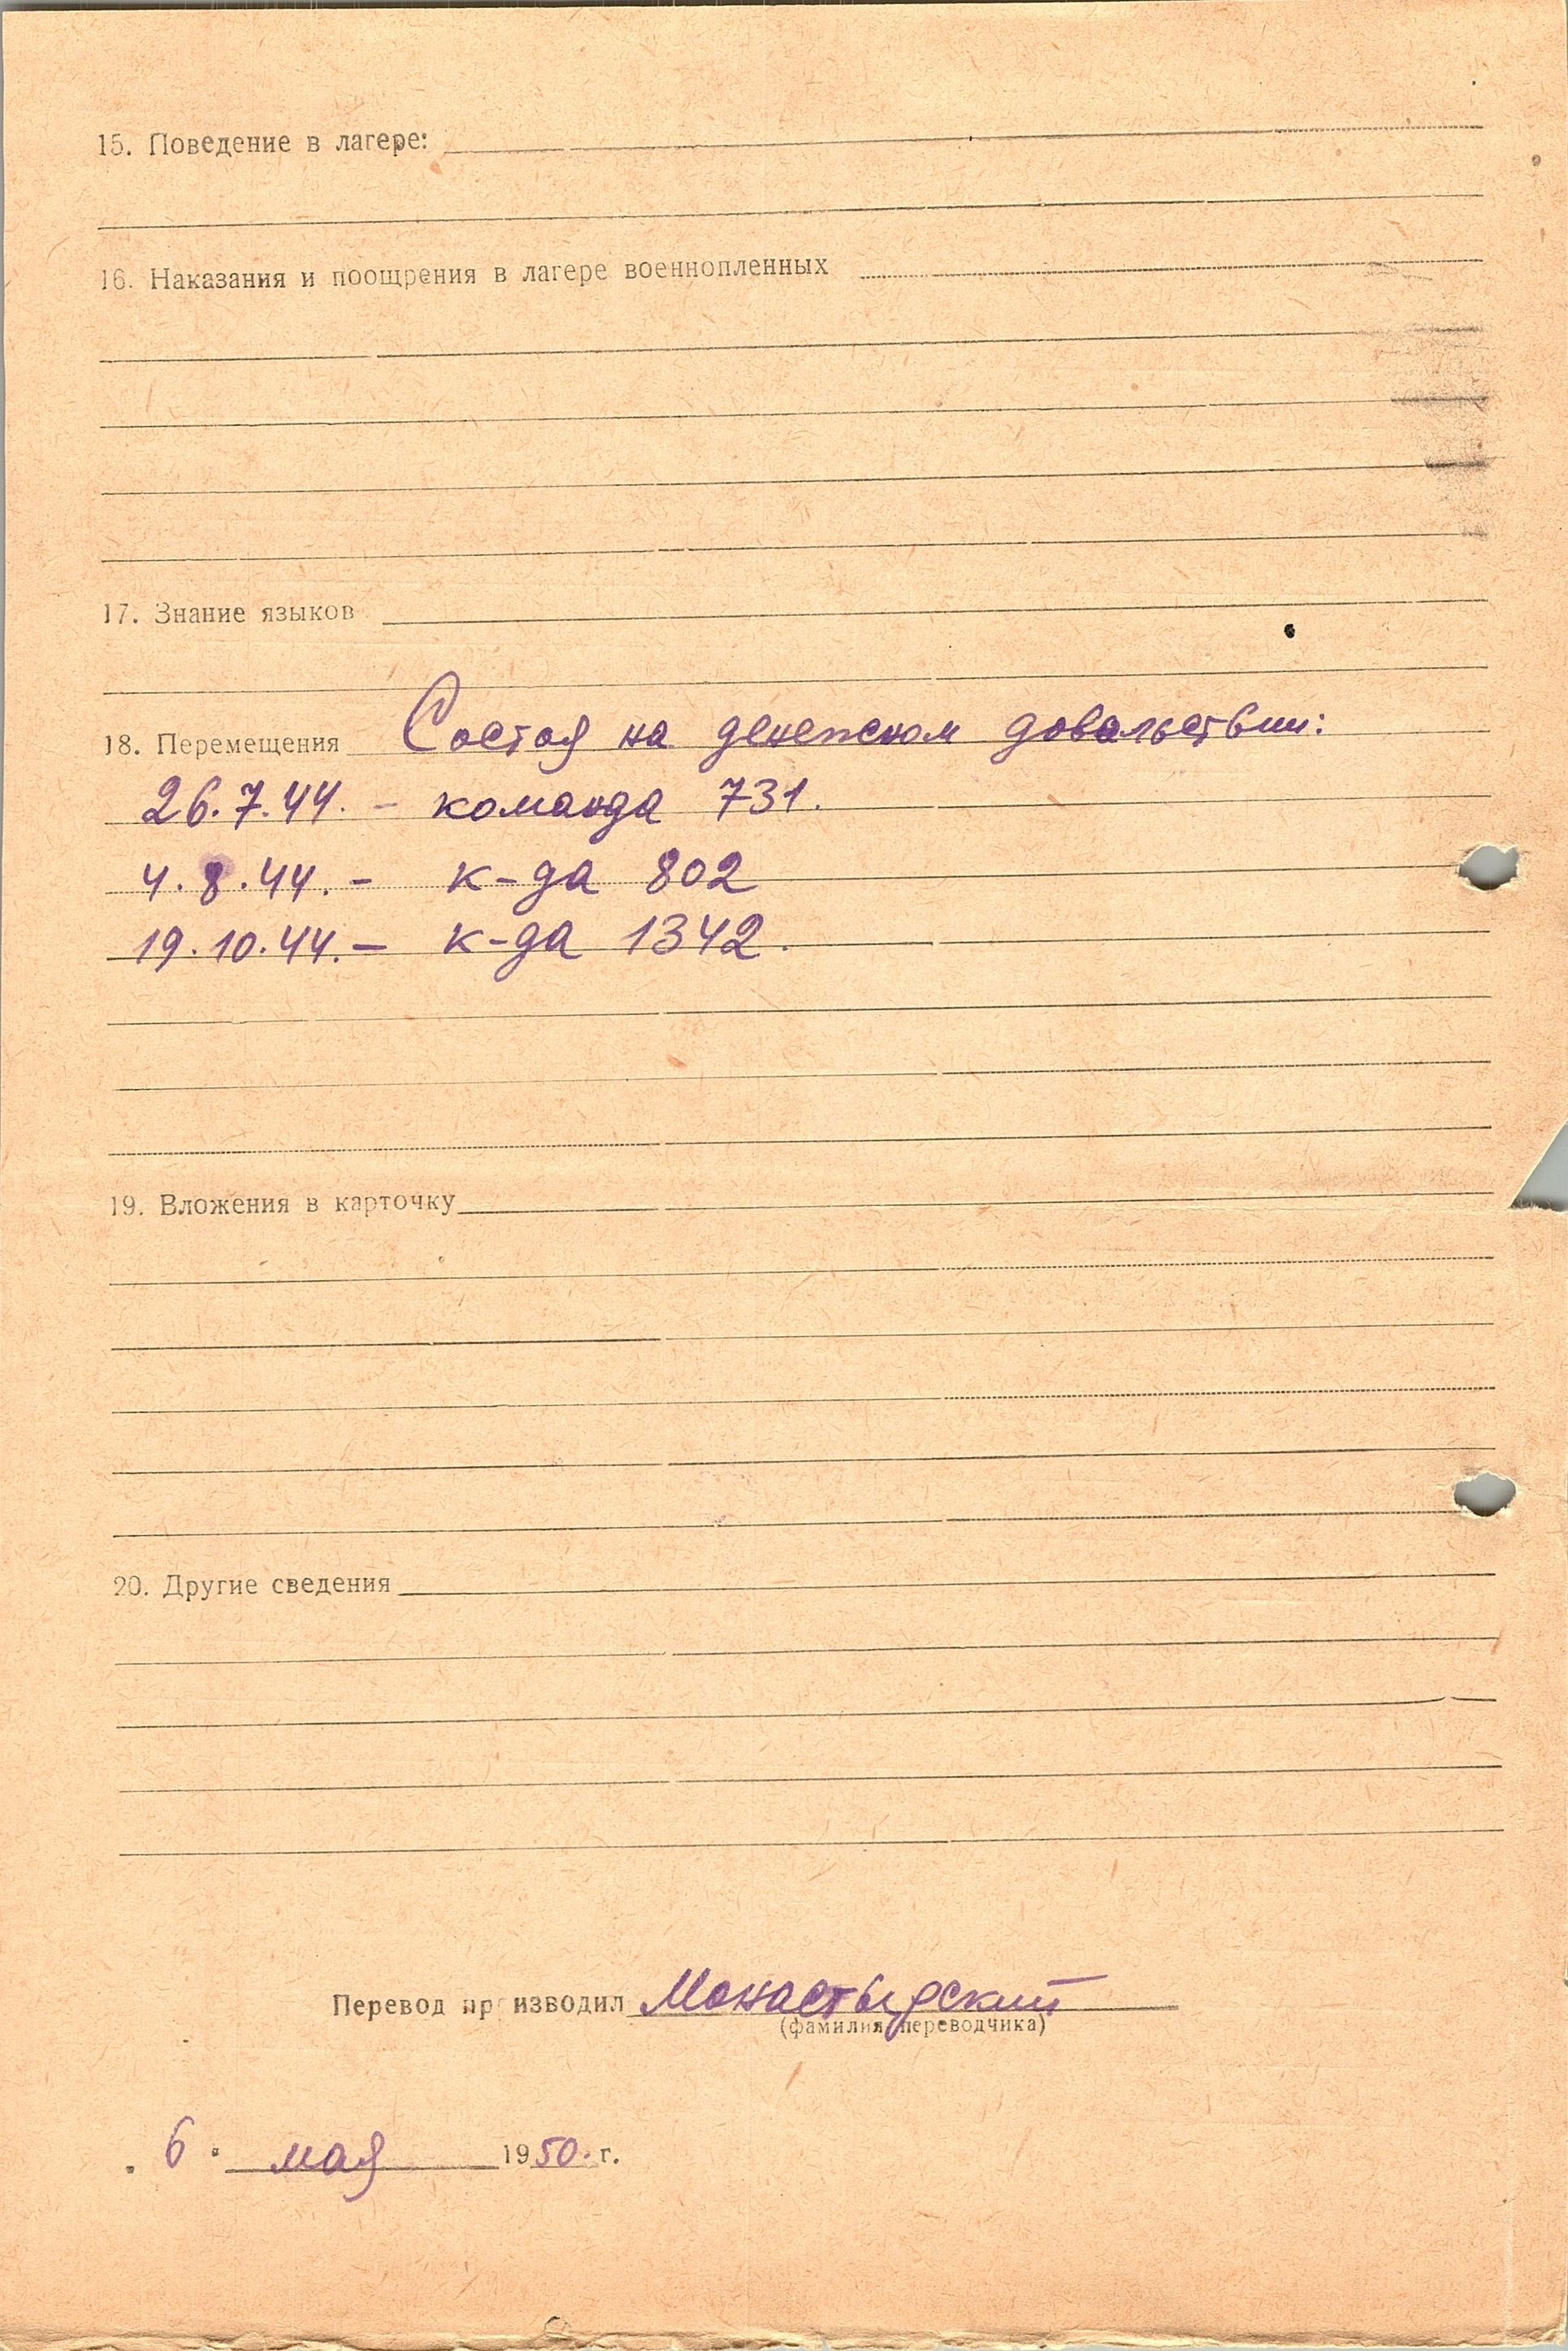 15. Поведение в лагере:
16. Наказания и поощрения в лагере военнопленных
17. Знание языков
18. Перемещения Состоя на денежном довальствии:
26.7.44. - команда 731.
4.8.44. - к-да 802
19.10.44. - к-да 1342.
19. Вложения в карточку
20. Другие сведения
Перевод производил Монастырский
(фамилия переводчика)
6. мая 1950. г.